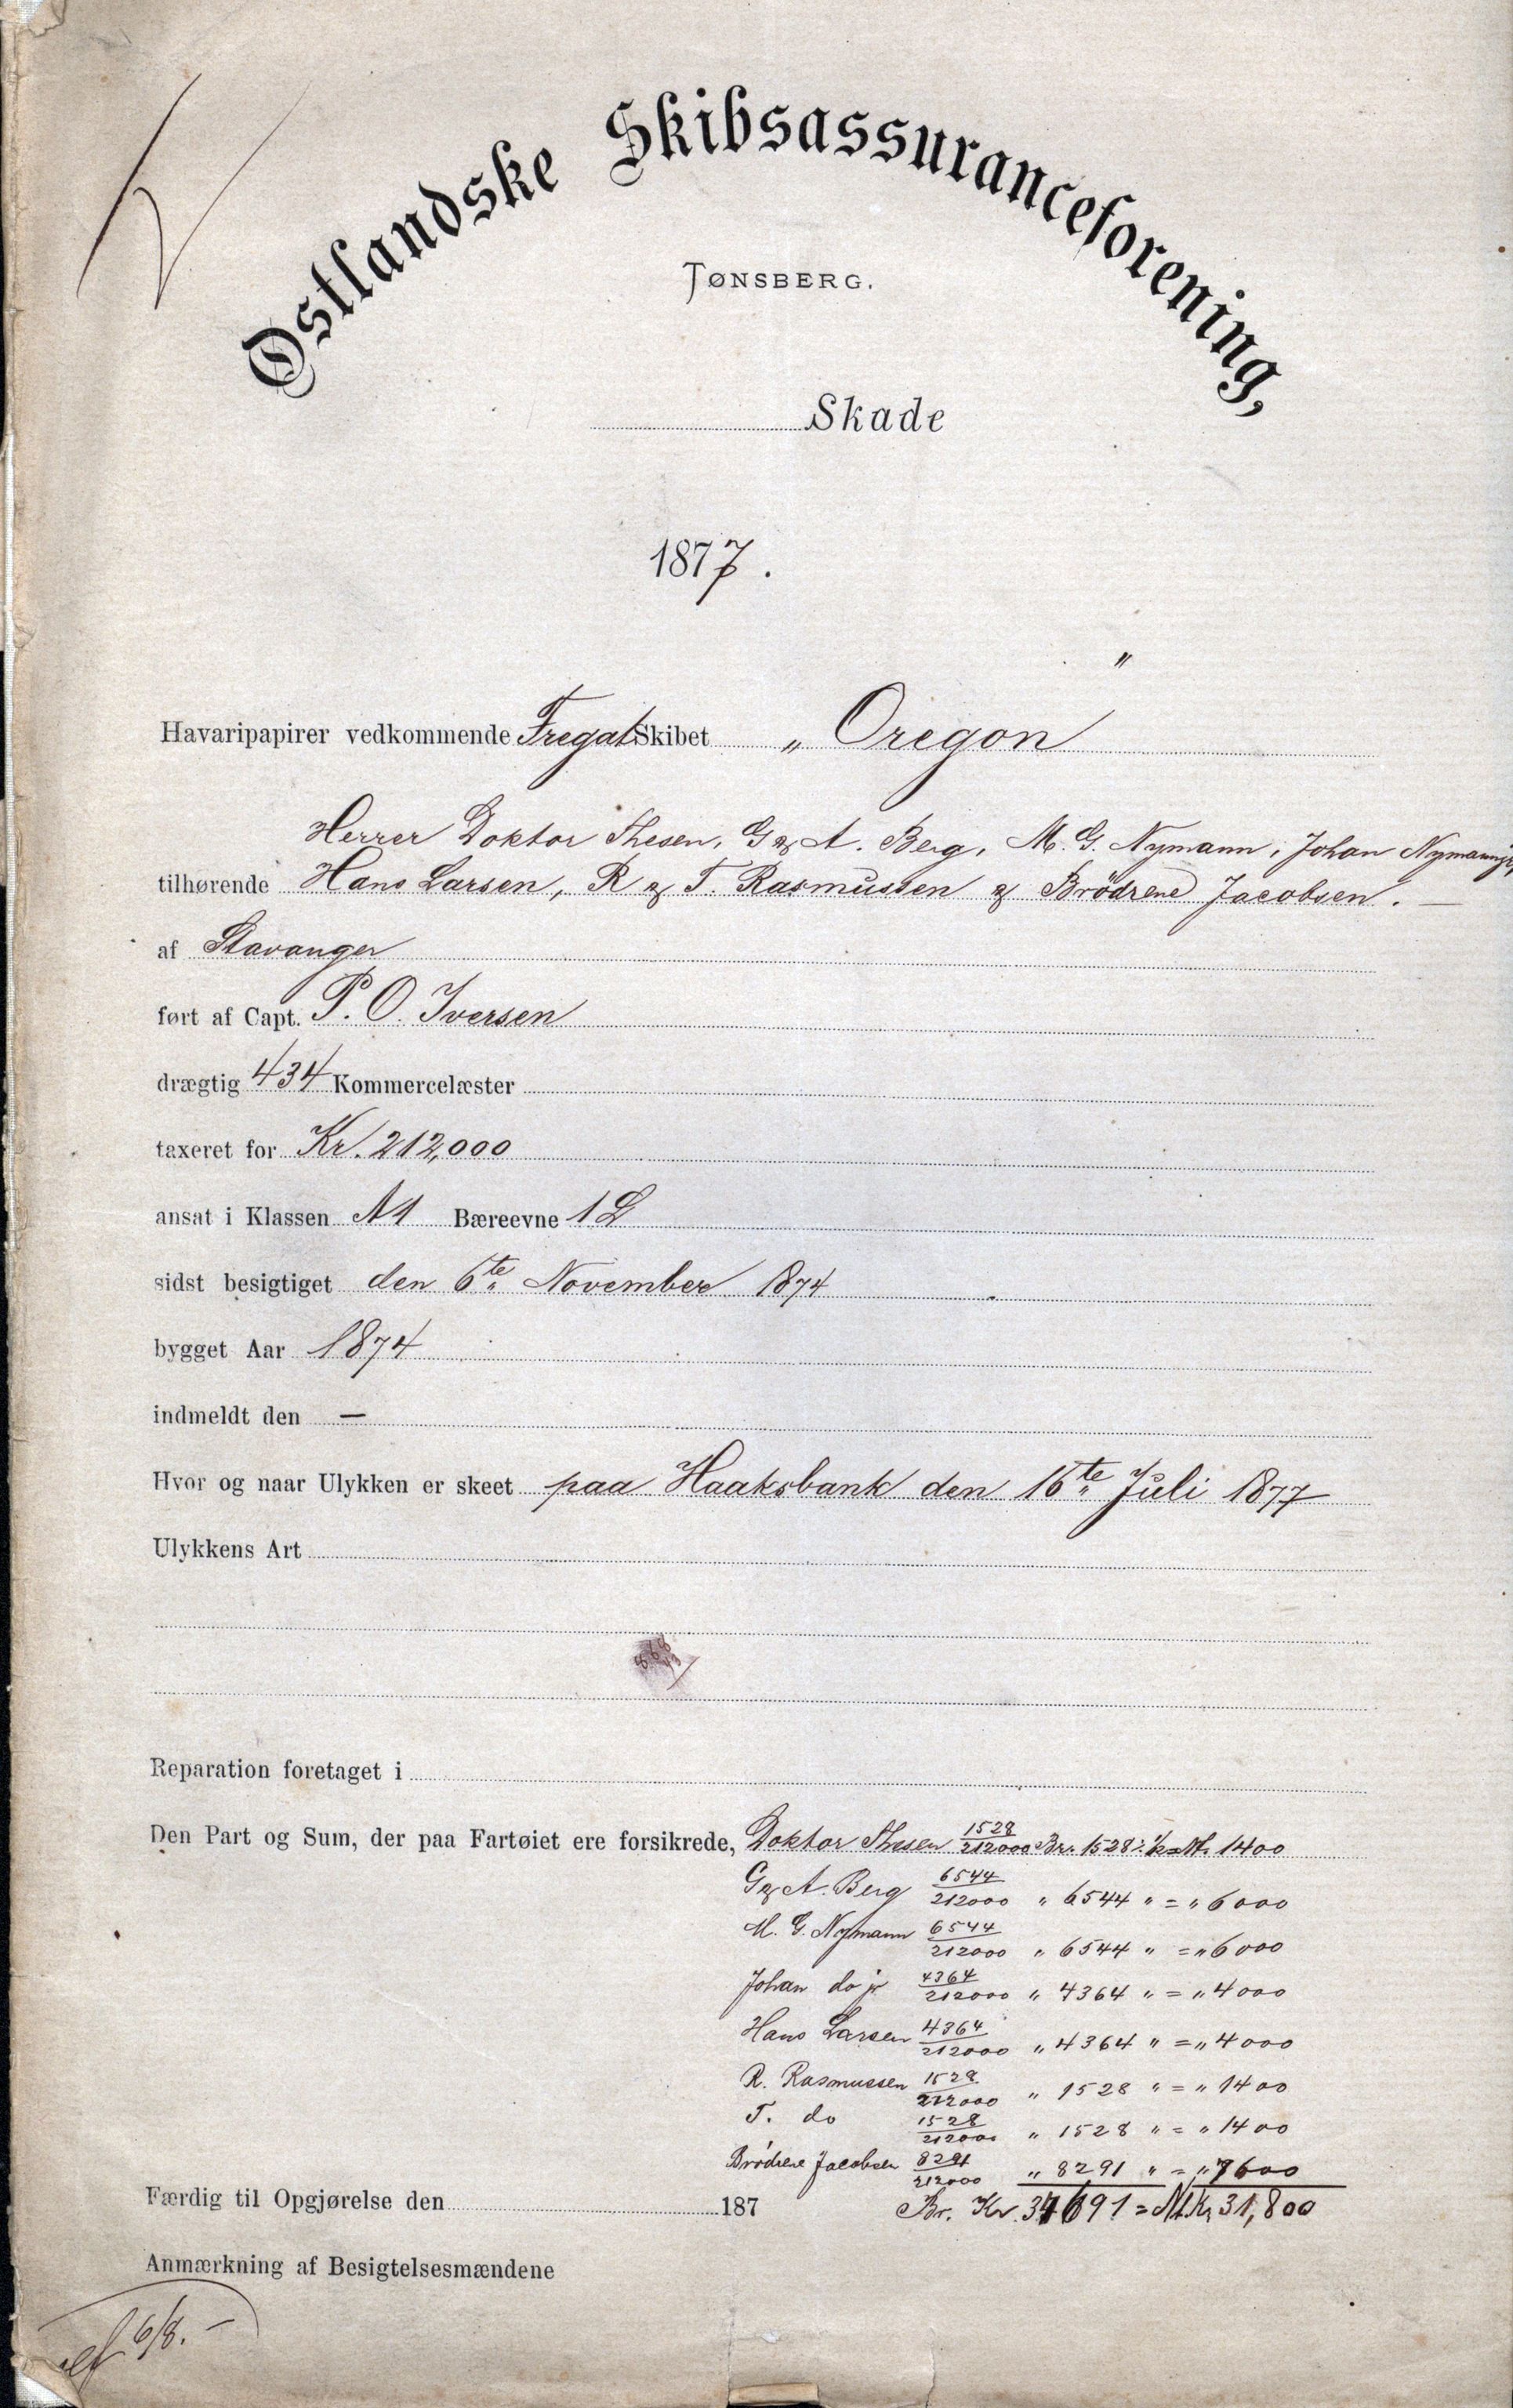 Østlandske Skibsassuranceforening,
TØNSBERG.
Skade
1877.
Havaripapirer vedkommende Fregat Skibet „Oregon"
Herrer Doktor Thesen, G & A. Berg, M. G. Nymann, Johan Nymann jr,
tilhørende Hans Larsen, R & T. Rasmussen & Brödrene Jacobsen. —
af Stavanger
ført af Capt. P. O. Iversen
drægtig 434 Kommercelæster
taxeret for Kr. 212,000
ansat i Klassen A1 Bæreevne 1 L
sidst besigtiget den 6te November 1874
bygget Aar 1874
indmeldt den —
Hvor og naar Ulykken er skeet paa Haaksbank den 16te Juli 1877
Ulykkens Art
Reparation foretaget i
Den Part og Sum, der paa Fartøiet ere forsikrede, Doktor Thesen 1528/212000 Br. 1528 = Nt. 1400
G & A. Berg 6544/212000 " 6544 " = " 6000
M. G. Nymann 6544/212000 " 6544 " = " 6000
Johan do jr 4364/212000 " 4364 " = " 4000
Hans Larsen 4364/212000 " 4364 " = " 4000
R. Rasmussen 1528/212000 " 1528 " = " 1400
T. do 1528/212000 " 1528 " = " 1400
Brödrene Jacobsen 8291/212000 " 8291 " = " 7600
Færdig til Opgjørelse den 187 Br. Kr. 34691 = Nt. Kr 31,800
Anmærkning af Besigtelsesmændene
6/8. –